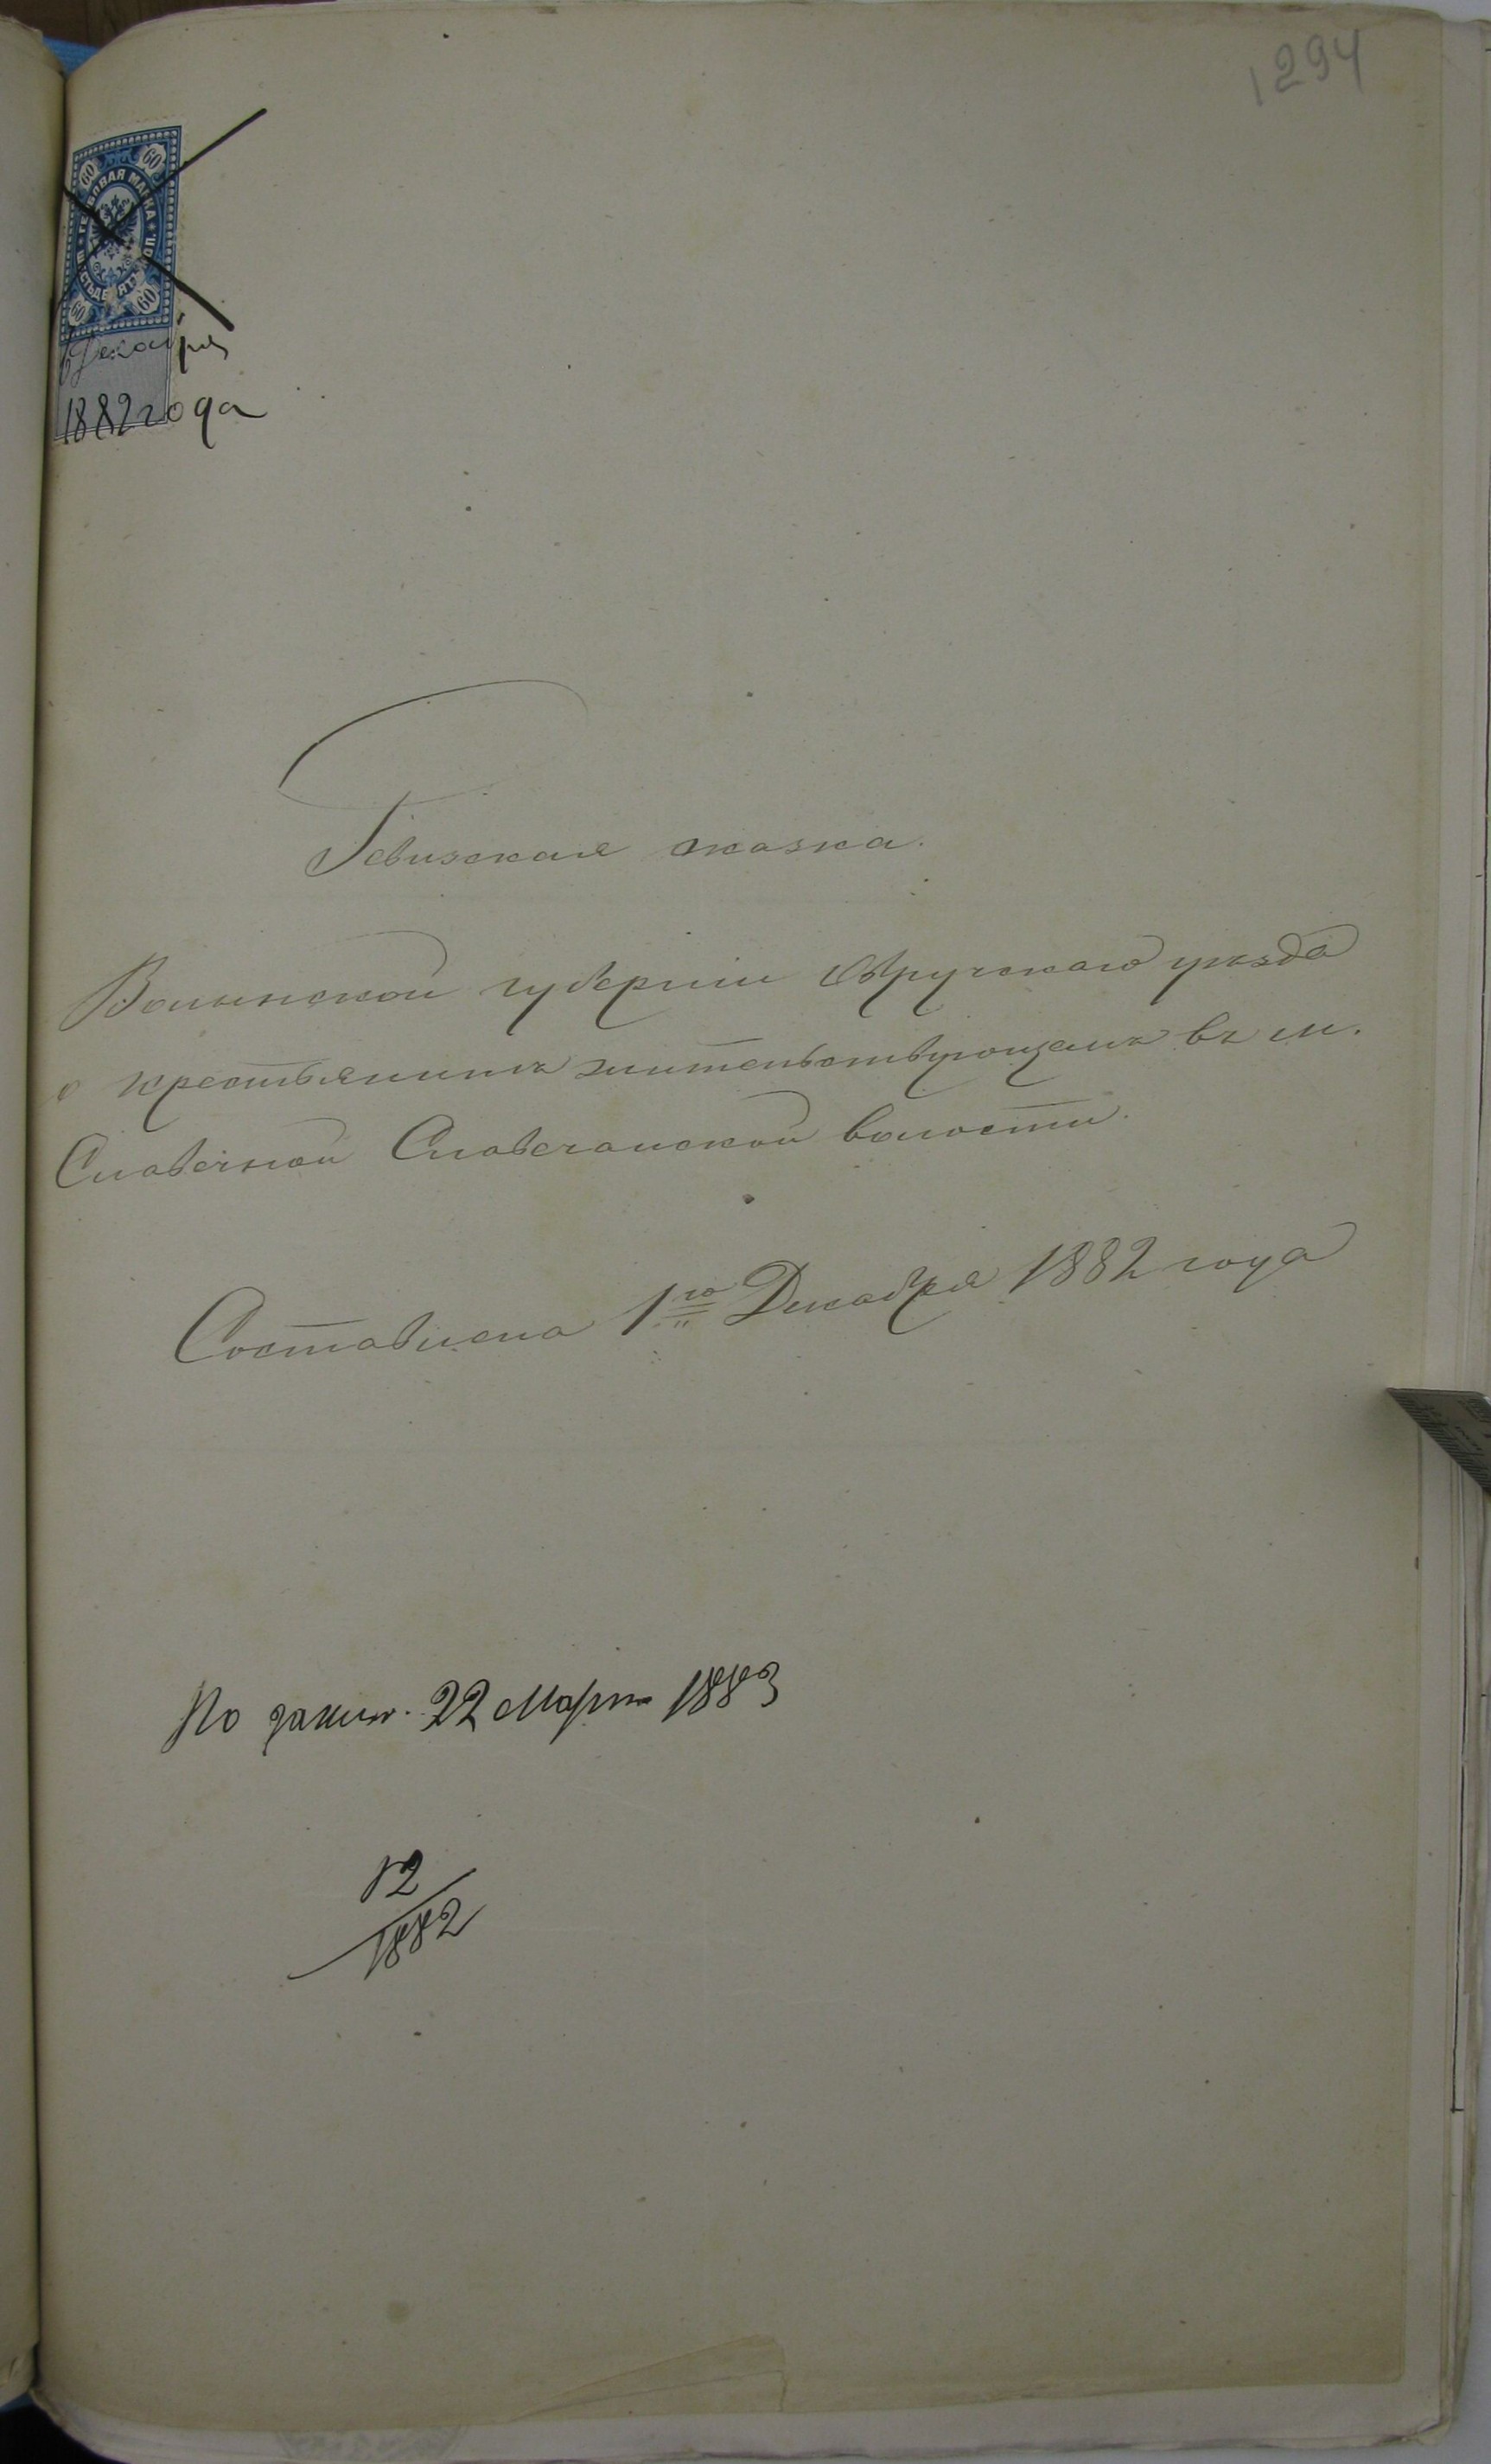 1294
60 60
ГЕРБОВАЯ МАРКА
ШЕСТЬДЕСЯТЪ КОП.
60 60
Декабря
1882 года
Ревизская сказка.
Волынской губерніи Овручскаго уѣзда
о крестьянинѣ жительствующемъ въ м.
Словечной Словечанской волости.
Составлена 1го Декабря 1882 года
По 22 Марта 1883
12
1882